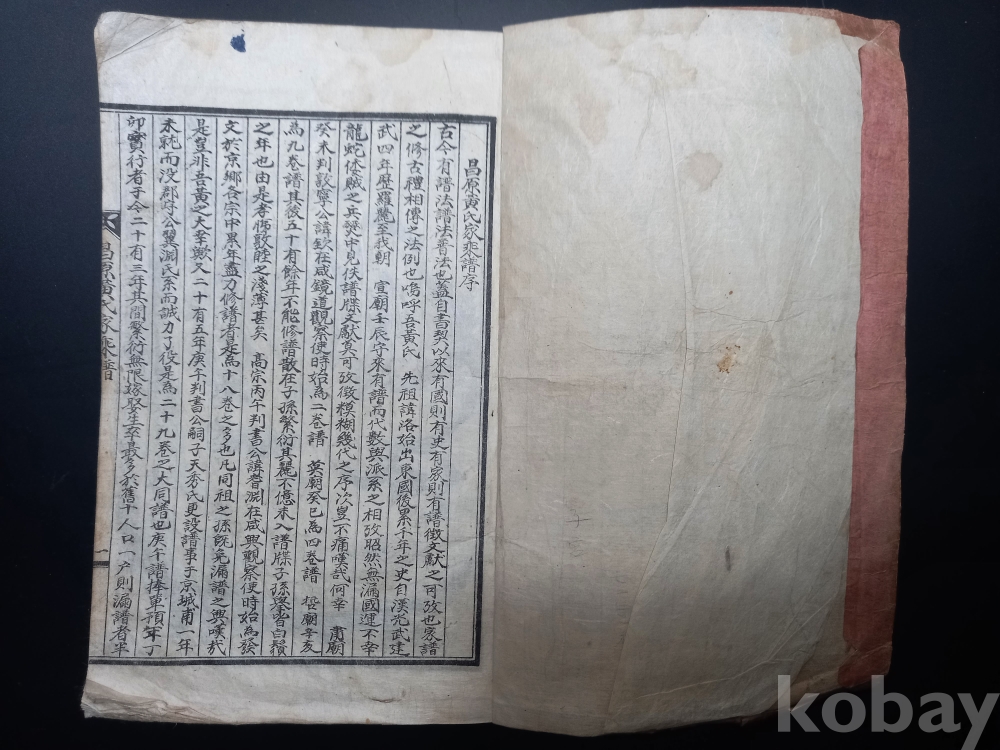 昌原黃氏家乘譜序
古今有譜法譜法普法也蓋自書契以來有國則有史有家則有譜徵文獻之可攷也家譜
之修古禮相傳之法例也嗚呼吾黃氏 先祖諱洛始出東國後累千年之史自漢光武建
武四年歷羅麗至我朝 宣廟壬辰守來有譜而代數與派系之相攷昭然無漏國運不幸
龍蛇倭賊之兵燹中見佚譜牒文獻莫可攷徵模糊幾代之序次豈不痛嘆哉何幸 肅廟
癸未判敦寧公諱欽在咸鏡道觀察使時始為二卷譜 英廟癸巳為四卷譜 哲廟辛亥
為九卷譜其後五十有餘年不能修譜散在子孫繁衍其麗不億未入譜牒子孫擧皆白鬚
之年也由是孝悌敦睦之淺薄甚矣 高宗丙午判書公諱耆淵在咸興觀察使時始為發
文於京鄉各宗中累年盡力修譜者是為十八卷之多也凡同祖之孫旣免漏譜之興嘆哉
是豈非吾黃之大幸歟又二十有五年庚午判書公嗣子天秀氏更設譜事于京城甫一年
未就而没郡守公翼淵氏系而誠力了役是為二十九卷之大同譜也庚午譜捧單預年丁
卯實行者于今二十有三年其間繁衍無限嫁娶生卒最多於舊十人口一戶則漏譜者半
昌原黃氏家乘譜
一
kobay